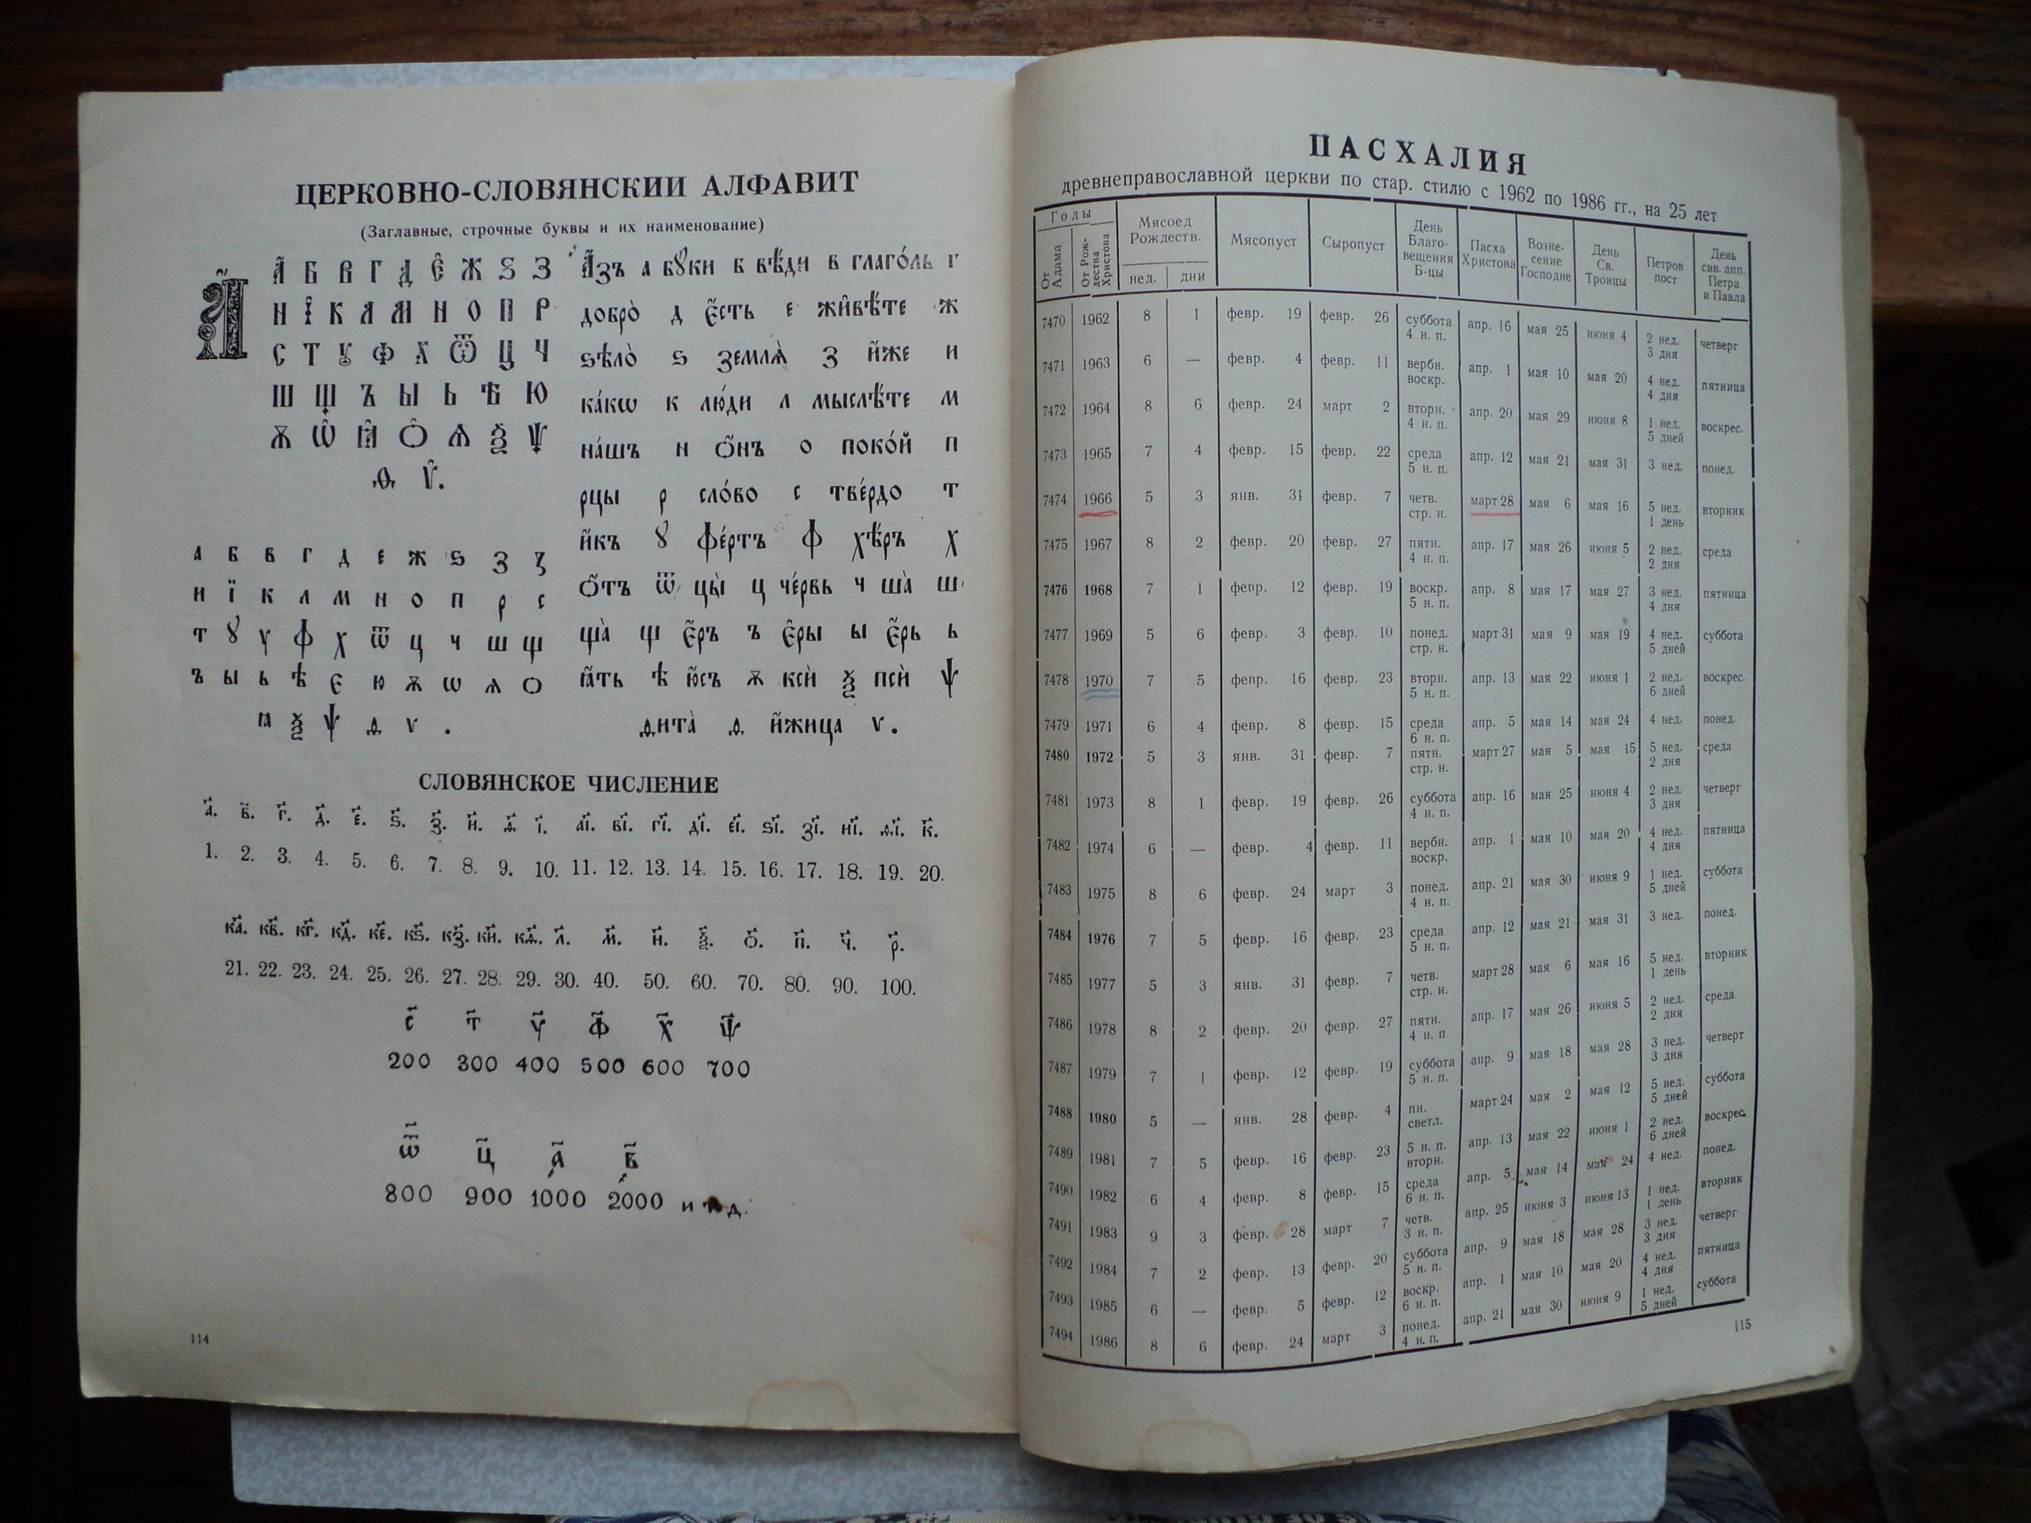 ЦЕРКОВНО-СЛОВЯНСКИИ АЛФАВИТ
(Заглавные, строчные буквы и их наименование)
А҆
А҆ Б В Г Д Є̂ Ж Ѕ З
И І К Л М Н О П Р
С Т Ꙋ Ф Х Ѿ Ц Ч
Ш Щ Ъ Ы Ь Ѣ Ю
Ѫ Ѡ Ꙗ Ѻ Ѧ Ѯ Ѱ
Ѳ Ѵ.
а б в г д е ж ѕ з ꙁ
и ї к л м н о п р с
т ꙋ у ф х ѿ ц ч ш щ
ъ ы ь ѣ є ю ѫ ѡ ѧ ѻ
ꙗ ѯ ѱ ѳ ѵ .
А҆зъ а бꙋки б вѣ́ди в глаго́ль г
добро̀ д є҆́сть е живѣ́те ж
ѕѣло̀ ѕ землѧ̀ з и҆́же и
ка́кѡ к лю́ди л мыслѣ́те м
на́шъ н ѻ҆́нъ о поко́й п
рцы р сло́во с тве́рдо т
и҆́къ ꙋ фе́ртъ ф хѣ́ръ х
ѻ҆́тъ ѿ цы̀ ц че́рвь ч ша̀ ш
ща̀ щ є҆́ръ ъ є҆ры̀ ы є҆́рь ь
ꙗ҆́ть ѣ ю҆́съ ѫ ксѝ ѯ псѝ ѱ
ѳита̀ ѳ и҆́жица ѵ.
СЛОВЯНСКОЕ ЧИСЛЕНИЕ
а҃. в҃. г҃. д҃. е҃. ѕ҃. з҃. и҃. ѳ҃. і҃. аі҃. ві҃. гі҃. ді҃. еі҃. ѕі҃. зі҃. иі҃. ѳі҃. к҃.
1. 2. 3. 4. 5. 6. 7. 8. 9. 10. 11. 12. 13. 14. 15. 16. 17. 18. 19. 20.
ка҃. кв҃. кг҃. кд҃. ке҃. кѕ҃. кз҃. ки҃. кѳ҃. л҃. м҃. н҃. ѯ҃. ѻ҃. п҃. ч҃. р҃.
21. 22. 23. 24. 25. 26. 27. 28. 29. 30. 40. 50. 60. 70. 80. 90. 100.
с҃ т҃ у҃ ф҃ х҃ ѱ҃
200 300 400 500 600 700
ѿ҃ ц҃ ҂а҃ ҂в҃
800 900 1000 2000 и т. д.
114
ПАСХАЛИЯ
древнеправославной церкви по стар. стилю с 1962 по 1986 гг., на 25 лет
Годы От Адама От Рождества Христова Мясоед Рождеств. нед. дни Мясопуст Сыропуст День Благовещения Б-цы Пасха Христова Вознесение Господне День Св. Троицы Петров пост День свв. апп. Петра и Павла
7470 1962 8 1 февр. 19 февр. 26 суббота 4 н. п. апр. 16 мая 25 июня 4 2 нед. 3 дня четверг
7471 1963 6 — февр. 4 февр. 11 вербн. воскр. апр. 1 мая 10 мая 20 4 нед. 4 дня пятница
7472 1964 8 6 февр. 24 март 2 вторн. 4 н. п. апр. 20 мая 29 июня 8 1 нед. 5 дней воскрес.
7473 1965 7 4 февр. 15 февр. 22 среда 5 н. п. апр. 12 мая 21 мая 31 3 нед. понед.
7474 1966 5 3 янв. 31 февр. 7 четв. стр. н. март 28 мая 6 мая 16 5 нед. 1 день вторник
7475 1967 8 2 февр. 20 февр. 27 пятн. 4 н. п. апр. 17 мая 26 июня 5 2 нед. 2 дня среда
7476 1968 7 1 февр. 12 февр. 19 воскр. 5 н. п. апр. 8 мая 17 мая 27 3 нед. 4 дня пятница
7477 1969 5 6 февр. 3 февр. 10 понед. стр. н. март 31 мая 9 мая 19 4 нед. 5 дней суббота
7478 1970 7 5 февр. 16 февр. 23 вторн. 5 н. п. апр. 13 мая 22 июня 1 2 нед. 6 дней воскрес.
7479 1971 6 4 февр. 8 февр. 15 среда 6 н. п. апр. 5 мая 14 мая 24 4 нед. понед.
7480 1972 5 3 янв. 31 февр. 7 пятн. стр. н. март 27 мая 5 мая 15 5 нед. 2 дня среда
7481 1973 8 1 февр. 19 февр. 26 суббота 4 н. п. апр. 16 мая 25 июня 4 2 нед. 3 дня четверг
7482 1974 6 — февр. 4 февр. 11 вербн. воскр. апр. 1 мая 10 мая 20 4 нед. 4 дня пятница
7483 1975 8 6 февр. 24 март 3 понед. 4 н. п. апр. 21 мая 30 июня 9 1 нед. 5 дней суббота
7484 1976 7 5 февр. 16 февр. 23 среда 5 н. п. апр. 12 мая 21 мая 31 3 нед. понед.
7485 1977 5 3 янв. 31 февр. 7 четв. стр. н. март 28 мая 6 мая 16 5 нед. 1 день вторник
7486 1978 8 2 февр. 20 февр. 27 пятн. 4 н. п. апр. 17 мая 26 июня 5 2 нед. 2 дня среда
7487 1979 7 1 февр. 12 февр. 19 суббота 5 н. п. апр. 9 мая 18 мая 28 3 нед. 3 дня четверг
7488 1980 5 — янв. 28 февр. 4 пн. светл. март 24 мая 2 мая 12 5 нед. 5 дней суббота
7489 1981 7 5 февр. 16 февр. 23 5 н. п. вторн. апр. 13 мая 22 июня 1 2 нед. 6 дней воскрес.
7490 1982 6 4 февр. 8 февр. 15 среда 6 н. п. апр. 5 мая 14 мая 24 4 нед. понед.
7491 1983 9 3 февр. 28 март 7 четв. 3 н. п. апр. 25 июня 3 июня 13 1 нед. 1 день вторник
7492 1984 7 2 февр. 13 февр. 20 суббота 5 н. п. апр. 9 мая 18 мая 28 3 нед. 3 дня четверг
7493 1985 6 — февр. 5 февр. 12 воскр. 6 н. п. апр. 1 мая 10 мая 20 4 нед. 4 дня пятница
7494 1986 8 6 февр. 24 март 3 понед. 4 н. п. апр. 21 мая 30 июня 9 1 нед. 5 дней суббота
115